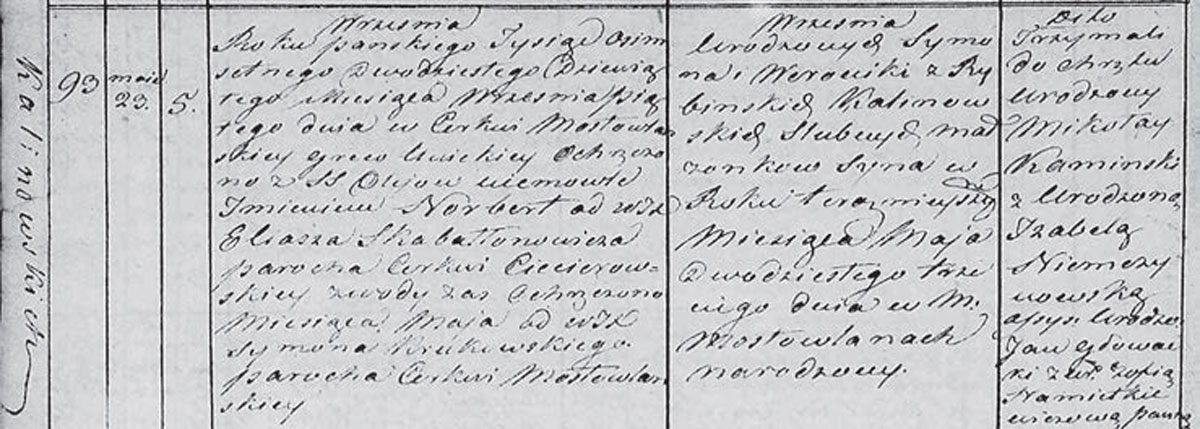 Kalinowskich
93
maia
23.
5.
Września
Roku pańskiego Tysiąc Osim
setnego Dwódziestego Dziewią
tego Miesiąca Września pią
tego dnia w Cerkwi Mostowlan
skiey Greco Unickiey Ochrzczo
no z SS Olijow niemowle
Imieniem Norbert od WJX
Eliasza Skabałłonowicza
parocha Cerkwi Ciecierow-
skiey z wody zas Ochrzczono
Miesiąca Maja od WJX
Symona Krukowskiego
parocha Cerkwi Mostowlan
skiey
Września
Urodzonych Symo
na i Weroniki z Ry
binskich Kalinow
skich Slubnych mał
zonkow Syna w
Roku teraznieyszym
Miesiąca Maja
Dwodziestego trze
ciego dnia w M:
Mostowlanach
narodzony.
Dito
Trzymali
do Chrztu
Urodzony
Mikołay
Kaminski
z Urodzoną
Izabelą
Niemczy
nowską
assys: Urodzo.
Jan Głowac
ki z Ur. Zofią
Namietkie
wiczową panną